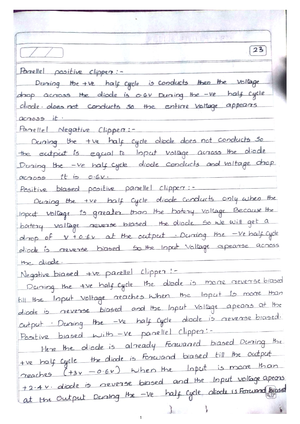 23
Parallel positive clipper :-
During the +ve half cycle is conducts then the voltage
drop across the diode is 0.6v During the -ve half cycle
diode does not conducts so the entire voltage appears
across it.
Parallel Negative Clipper :-
During the +ve half cycle diode does not conducts so
the output is equal to input voltage across the diode
During the -ve half cycle diode conducts and voltage drop
across it is 0.6v.
Positive biased positive parallel clipper :-
During the +ve half cycle diode conducts only when the
input voltage is greater than the battery voltage Because the
battery voltage reverse biased the diode. So we will get a
drop of V+0.6v at the output. During the -ve half cycle
diode is reverse biased so the input voltage apearse across
the diode
Negative biased +ve parellel clipper :-
During the +ve half cycle the diode is more reverse biased
till the input voltage reaches when the input is more than
diode is reverse biased and the input voltage apears at the
output. During the -ve half cycle diode is reverse biased.
Positive biased with -ve parellel clipper :-
Here the diode is already Forward biased During the
+ve half cycle the diode is Forward biased till the output
reaches (+3v - 0.6v) when the input is more than
+2.4v diode is reverse biased and the input voltage apears
at the output During the -ve half cycle diode is Forward biased